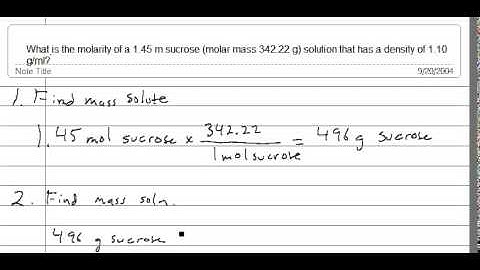 What is the molarity of a 1.45 m sucrose (molar mass 342.22 g) solution that has a density of 1.10
g/ml?
Note Title
9/20/2004
1. Find mass solute
1.45 mol sucrose x 342.22 / 1 mol sucrose = 496 g sucrose
2. Find mass soln.
496 g sucrose